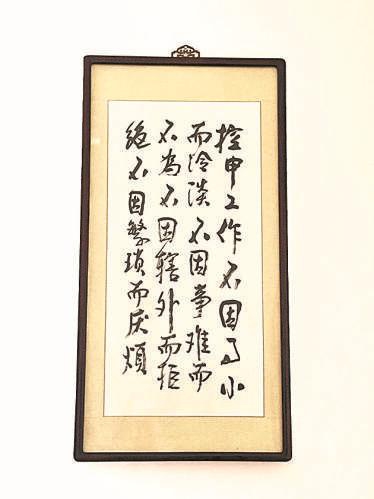 控申工作不因事小
而冷淡不因事难而
不为不因辖外而拒
绝不因繁琐而厌烦